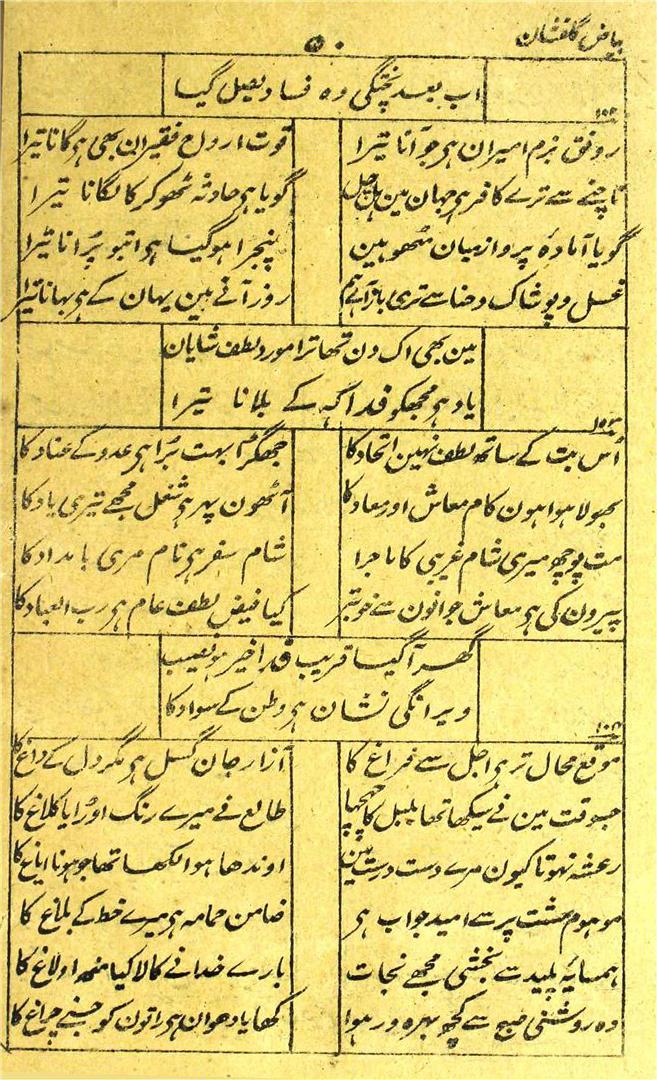 بیاض گلفشان
۵۰
اب بعد پختگی وہ فساد پھیل گیا
۱۰۲
رونق بزم امیران ہی جو آنا تیرا
قوت ارواح فقیران بھی ہی گانا تیرا
ناچنے سے ترے کافر ہی جہان مین
گویا ہی حادثہ ٹھوکر کا لگانا تیرا
گویا آمادۂ پرواز میان مٹھو ہین
پنجرا ہو گیا ہی اتبو پرانا تیرا
غسل و پوشاک و حنا سے تری باز آئے ہم
روز آنے مین یہان کے ہی بہانا تیرا
مین بھی اک دن تھا ترا مورد لطف شایان
یاد ہی مجھکو فدا کہہ کے بلانا تیرا
۱۰۳
اُس بت کے ساتھ لطف نہین اتحاد کا
جھگڑا بہت بُرا ہی عدو کے عناد کا
بھولا ہوا ہون کام معاش اور معاد کا
آٹھون پہر ہی شغل مجھے تیری یاد کا
مت پوچھ میری شام غریبی کا ماجرا
شام سفر ہی نام مری بامداد کا
پیرون کی ہی معاش جوانون سے خوبتر
کیا فیض لطف عام ہی رب العباد کا
گھر آ گیا قریب فدا خیر ہو نصیب
ویرانگی نشان ہی وطن کے سواد کا
۱۰۴
موقع محال تر ہی اجل سے فراغ کا
آزار جان گسل ہی مگر دل کے داغ کا
جسوقت مین نے سیکھا تھا بلبل کا چہچہا
طالع نے میرے رنگ اوڑایا کلاغ کا
رعشہ نہوتا کیون مرے دست درست مین
اوندھا ہوا لکھا تھا جو ہونا ایاغ کا
موہوم مشت پر سے امید جواب ہی
ضامن حمامہ ہی میرے خط کے بلاغ کا
ہمسایۂ پلید سے بخشی مجھے نجات
بارے خدا نے کالا کیا منھ اولاغ کا
وہ روشنی صبح سے کچھ بہرہ ور ہوا
کھایا دھوان ہی راتون کو جسنے چراغ کا